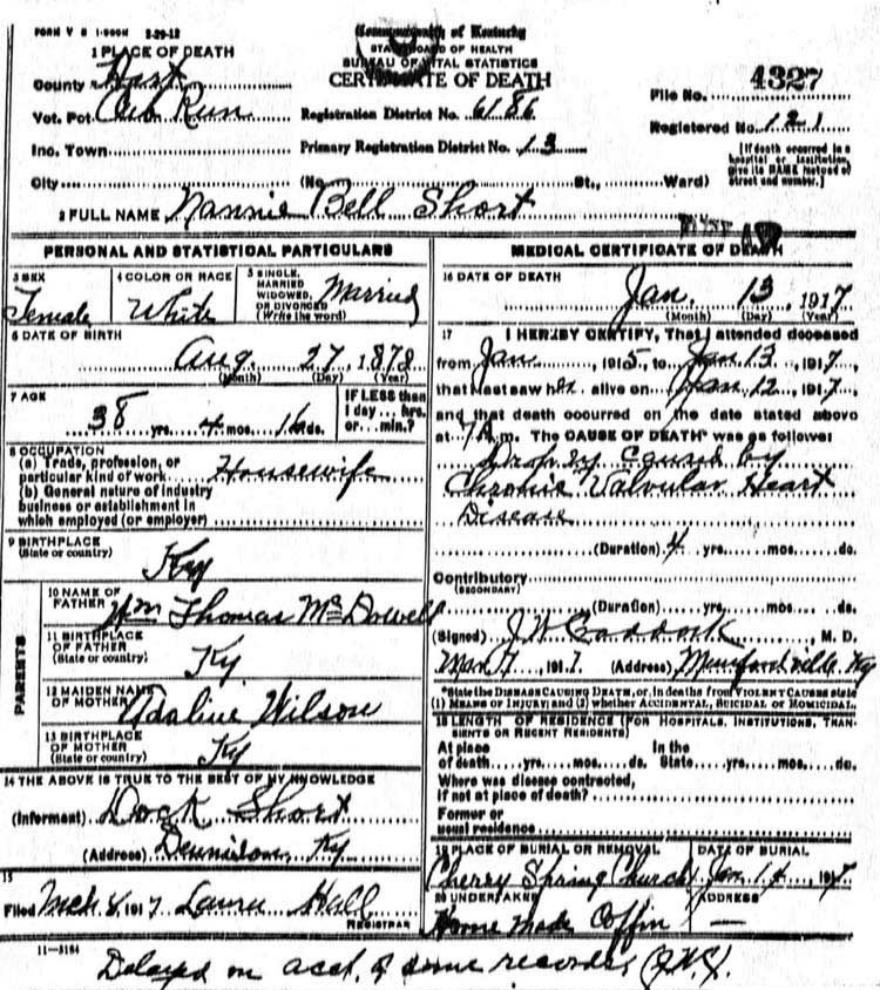 FORM V S 1-500M 3-29-12
Commonwealth of Kentucky
STATE BOARD OF HEALTH
BUREAU OF VITAL STATISTICS
CERTIFICATE OF DEATH
1 PLACE OF DEATH
County Hart
Vot. Pct. Cub Run
Registration District No. 6186
File No. 4327
Registered No. 121
Inc. Town
Primary Registration District No. 13
[If death occurred in a hospital or institution, give its NAME instead of street and number.]
City (No. St., Ward)
2 FULL NAME Nannie Bell Short
PERSONAL AND STATISTICAL PARTICULARS
3 SEX
Female
4 COLOR OR RACE
White
5 SINGLE, MARRIED WIDOWED, OR DIVORCED (Write the word)
Married
6 DATE OF BIRTH
Aug. 27, 1878
(Month) (Day) (Year)
7 AGE
38 yrs. 4 mos. 16 ds.
IF LESS than 1 day... hrs. or... min.?
8 OCCUPATION
(a) Trade, profession, or particular kind of work Housewife
(b) General nature of industry business or establishment in which employed (or employer)
9 BIRTHPLACE
(State or country)
Ky
PARENTS
10 NAME OF FATHER Wm Thomas McDowell
11 BIRTHPLACE OF FATHER (State or country) Ky
12 MAIDEN NAME OF MOTHER Adaline Wilson
13 BIRTHPLACE OF MOTHER (State or country) Ky
14 THE ABOVE IS TRUE TO THE BEST OF MY KNOWLEDGE
(Informant) Dock Short
(Address) Dennison, Ky
15
Filed Mch. 8, 1917 Laura Hall
REGISTRAR
MEDICAL CERTIFICATE OF DEATH
16 DATE OF DEATH
Jan. 13, 1917
(Month) (Day) (Year)
17 I HEREBY CERTIFY, That I attended deceased
from Jan, 1915, to Jan 13, 1917,
that I last saw her alive on Jan 12, 1917,
and that death occurred on the date stated above
at 7 A m. The CAUSE OF DEATH* was as follows:
Dropsy caused by
Chronic Valvular Heart
Disease
(Duration) 4 yrs. mos. ds.
Contributory
(SECONDARY)
(Duration) yrs. mos. ds.
(Signed) J W Craddock, M. D.
Mar 7, 1917. (Address) Munfordville, Ky
*State the DISEASE CAUSING DEATH, or, in deaths from VIOLENT CAUSES state
(1) MEANS OF INJURY; and (2) whether ACCIDENTAL, SUICIDAL or HOMICIDAL.
18 LENGTH OF RESIDENCE (FOR HOSPITALS, INSTITUTIONS, TRANSIENTS OR RECENT RESIDENTS)
At place of death yrs. mos. ds. In the State yrs. mos. ds.
Where was disease contracted,
If not at place of death?
Former or
usual residence
19 PLACE OF BURIAL OR REMOVAL
Cherry Spring Church
DATE OF BURIAL
Jan 14, 1917
20 UNDERTAKER
Home Made Coffin
ADDRESS
—
11-3184
Delayed on acct. of some records